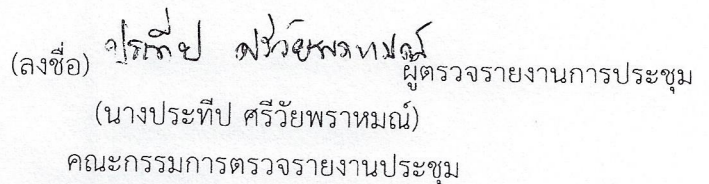 (ลงชื่อ) ประทีป ศรีวัยพราหมณ์ ผู้ตรวจรายงานการประชุม
(นางประทีป ศรีวัยพราหมณ์)
คณะกรรมการตรวจรายงานประชุม